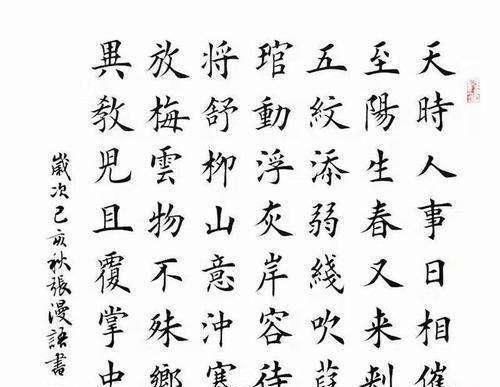 天時人事日相催
至陽生春又来
五紋添弱綫吹
琯動浮灰岸容待
將舒柳山意沖寒
放梅雲物不殊鄉
異教児且覆掌中
歲次己亥秋張漫語書